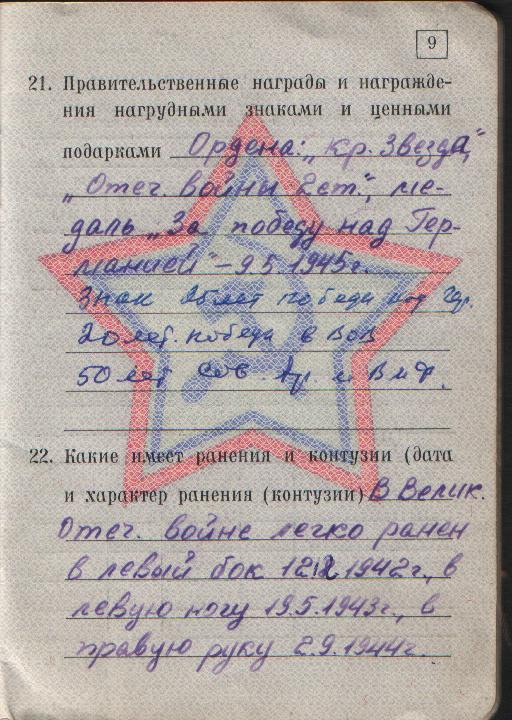 9
21. Правительственные награды и награжде-
ния нагрудными знаками и ценными
подарками Ордена: „Кр. Звезда",
„Отеч. войны 2 ст.", ме-
даль „За победу над Гер-
манией" – 9.5.1945г.
Знак 25 лет победы над Гер.
20 лет. победы в ВОВ
50 лет Сов. Ар. и ВМФ.
22. Какие имеет ранения и контузии (дата
и характер ранения (контузии) В Велик.
Отеч. войне легко ранен
в левый бок 1942г., в
левую ногу 19.5.1943г., в
правую руку 2.9.1944г.